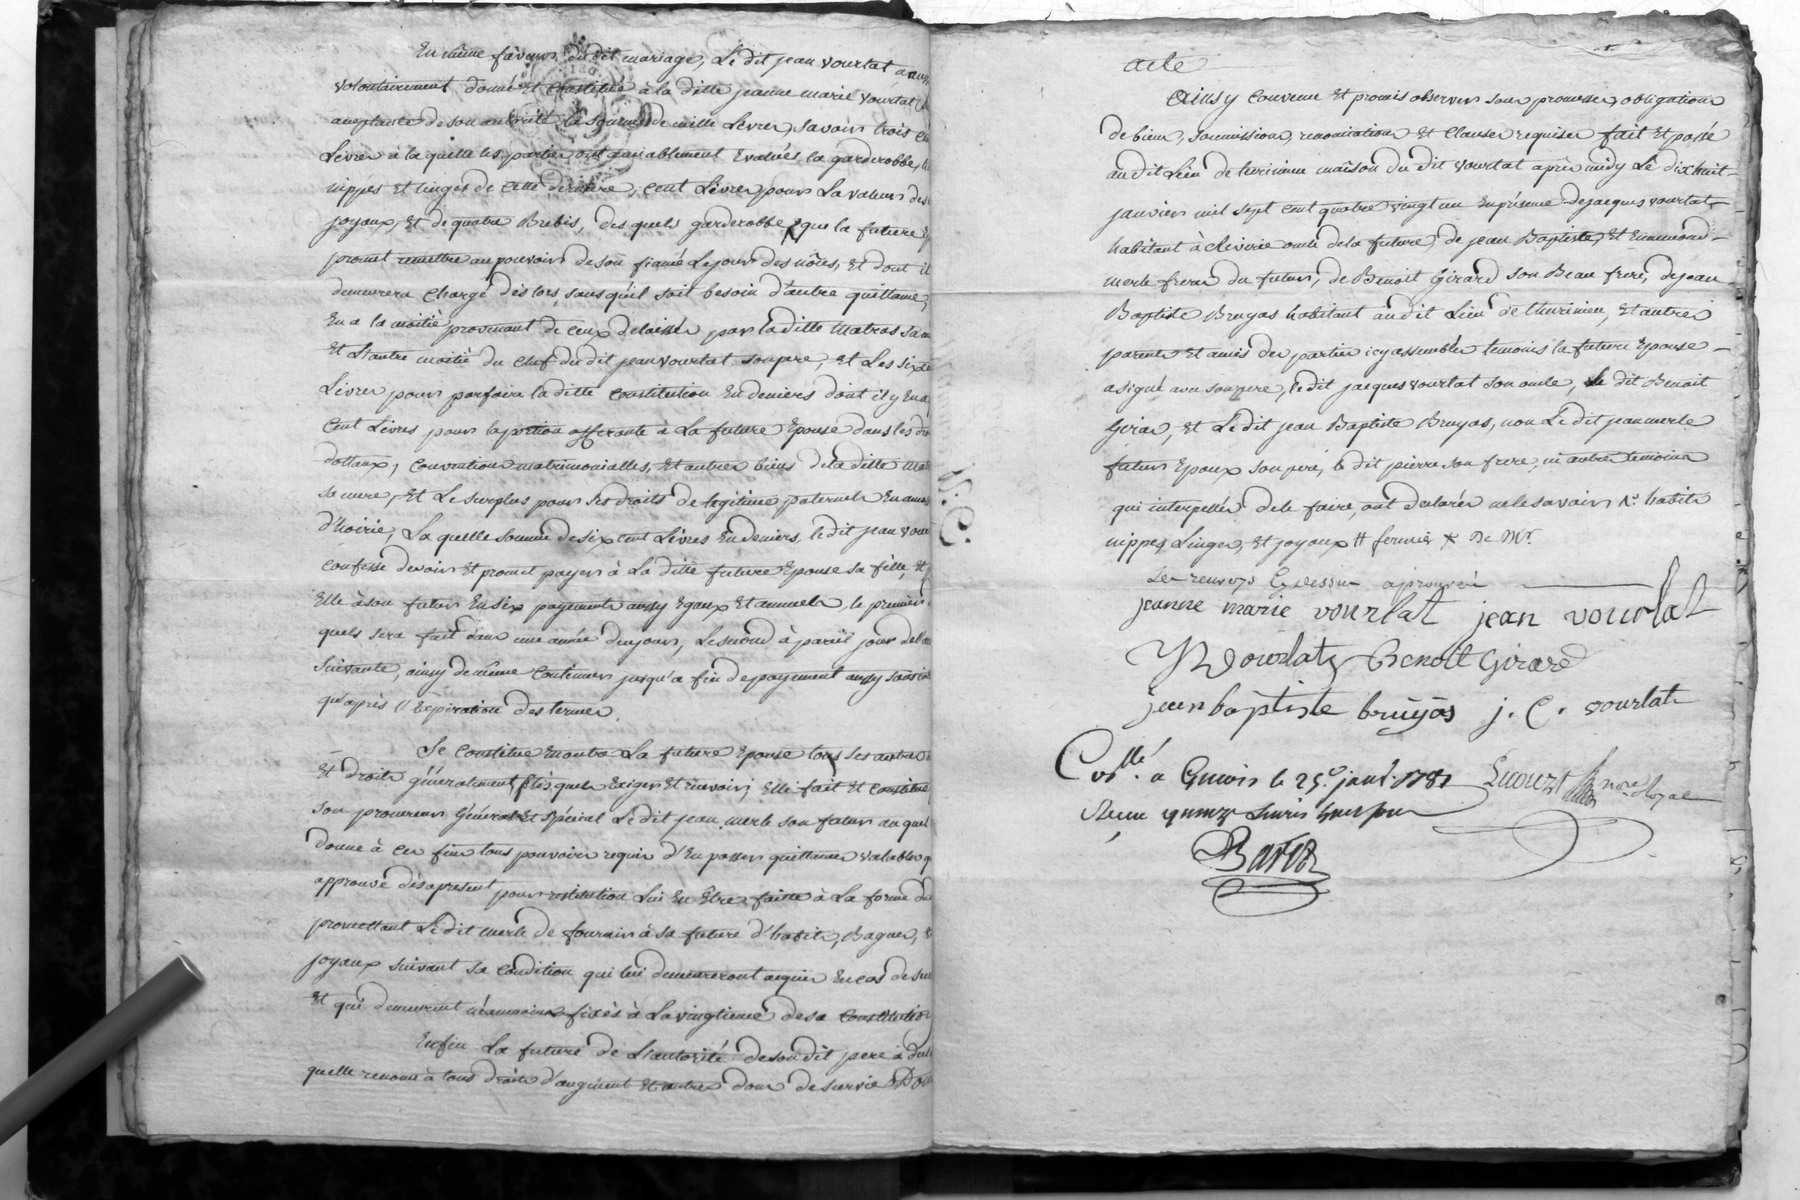 En même faveurs du dit mariage, Le dit jean vourlat a aussy
volontairement donné et constitué à la ditte jeanne marie vourlat
aceptante de son autorité la somme de mille Livres, Savoir trois
Livres à la quelle les parties ont amiablement Evalués la garderobbe,
nippes et linges de cette derniere, cent Livres pour La valeur des
joyaux, et de quatre Brebis, des quels garderobbe que la future
promet remettre au pouvoir de son fiancé Le jour des nôces, et dont il
demeurera chargé dès lors, sans qu'il soit besoin d'autre quittance,
En a la moitié provenant de ceux delaissés par la ditte matras sa
Et L'autre moitié du chef du dit jean vourlat son pere, et Les six
Livres pour parfaire la ditte constitution En deniers dont il y En a
Cent Livres pour la portion afferante à La future Epouse dans les
dottaux, convention matrimonialles, et autres biens de la ditte
sa mere, Et Le surplus pour ses droits de legitime paternels En
d'hoirie, La quelle somme de six cent Livres En deniers, le dit jean
confesse devoir et promet payer à La ditte future Epouse sa fille, et
Elle à son futur En six payements aussy Egaux Et annuels, le premier
quels sera fait dans une année du jour, Le second à pareil jour de
suivante, ainsy de même continuer jusqu'a fin de payement aussy sans
qu'après l'Expiration des termes.
Se constitue En outre La future Epouse tous ses autres
Et droits généralement, pour Exiger Et recevoir, Elle fait Et constitue
son procureur Général Et spécial Le dit jean merle son futur au quel
donne à ces fins tous pouvoirs requis d'En passer quittances valables
approuvé dès a present pour restitution Lui En Etre faitte à La forme du
promettant Le dit merle de fournir à sa future d'habits, Bagues,
joyaux suivant sa condition qui lui demeureront acquis En cas de
Et qui demeurent néanmoins fixés à La vingtieme de sa constitution
Enfin La future de L'autorité de son dit pere a
quelle renonce à tous droits d'augment Et autres dons de survie
acte
Ainsy convenu Et promis observer sous promesses, obligation
de biens, soumission, renonciation Et clauses requises fait Et passé
au dit Lieu de maison du dit vourlat après midy Le dix huit
janvier mil sept cent quatre vingt un En présence de jacques vourlat
habitant à Riverie oncle de la future, de jean Baptiste, Et Ennemond
merle freres du futur, de Benoit Girard son Beau frere, de jean
Baptiste Bruyas habitant au dit Lieu de thurimieu, Et autres
parents Et amis des parties icy assemblés temoins la future Epouse
a signé avec son pere, le dit jacques vourlat son oncle, Le dit Benoit
Girar, Et Le dit jean Baptiste Bruyas, non Le dit jean merle
futur Epoux son peré, le dit pierre son frere, ni autres temoins
qui interpellés de le faire, ont declarés ne le savoir habits
nippes, Linges, et joyaux # fermier x De Mr.
Les renvoys Cy dessus approuvés
jeanne marie vourlat jean vourlat
Vourlat Benoit Girard
jean baptiste bruÿas j. C. vourlat
Conllé. a Givors le 25e. janv. 1781 nore. Royal
Reçu quinze Livres